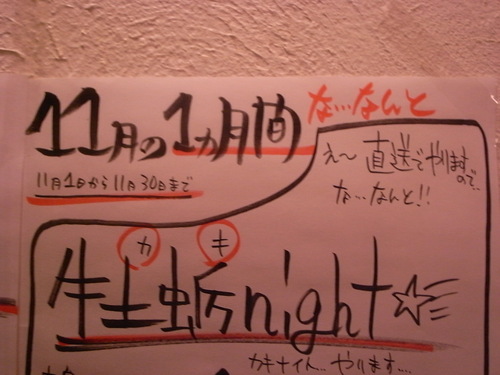 11月の1ヵ月間 な…なんと
11月1日から11月30日まで
え〜直送でやりますので…
な…なんと!!
カ キ
牡蛎night☆
カキナイト… やります…